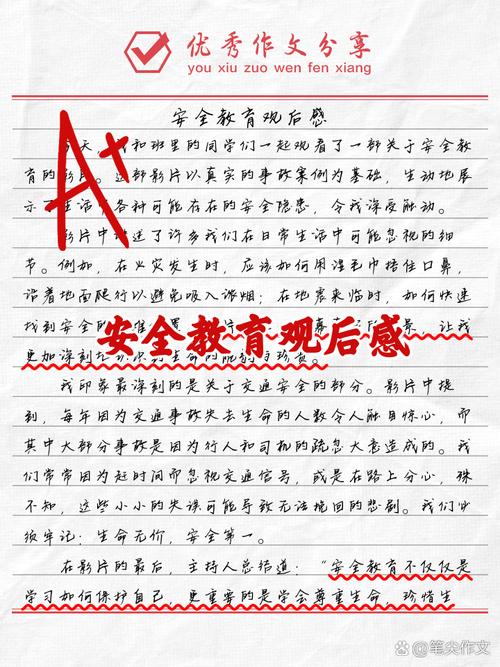 优秀作文分享
you xiu zuo wen fen xiang
安全教育观后感
A+
天,我和班里的同学们一起观看了一部关于安全教
育的影片。这部影片以真实的事故案例为基础,生动地展
示了生活中各种可能存在的安全隐患,令我深受触动。
影片中讲述了许多我们在日常生活中可能忽视的细
节。例如,在火灾发生时,应该如何用湿毛巾捂住口鼻,
沿着地面爬行以避免吸入浓烟;在地震来临时,如何快速
找到安全的 景,让我
安全教育观后感
更加深刻 生命的脆弱与珍贵。
我印象最深刻的是关于交通安全的部分。影片中提
到,每年因为交通事故失去生命的人数令人触目惊心,而
其中大部分事故是因为行人和司机的疏忽大意造成的。我
们常常因为赶时间而忽视交通信号,或是在路上分心,殊
不知,这些小小的失误可能导致无法挽回的悲剧。我们必
须牢记:生命无价,安全第一。
在影片的最后,主持人总结道:“安全教育不仅仅是
学习如何保护自己,更重要的是学会尊重生命,珍惜生
笔尖作文